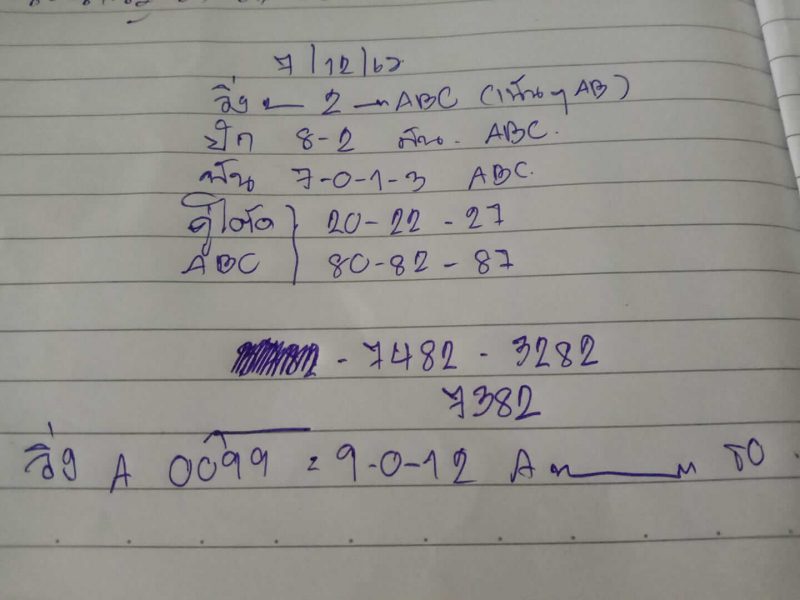 7/12/62
วิ่ง 2 ABC (เน้นๆ AB)
ปัก 8-2 ABC.
7-0-1-3 ABC.
คู่โต๊ด } 20-22-27
ABC } 80-82-87
- 7482 - 3282
7382
วิ่ง A 0099 = 9-0-12 A รอ